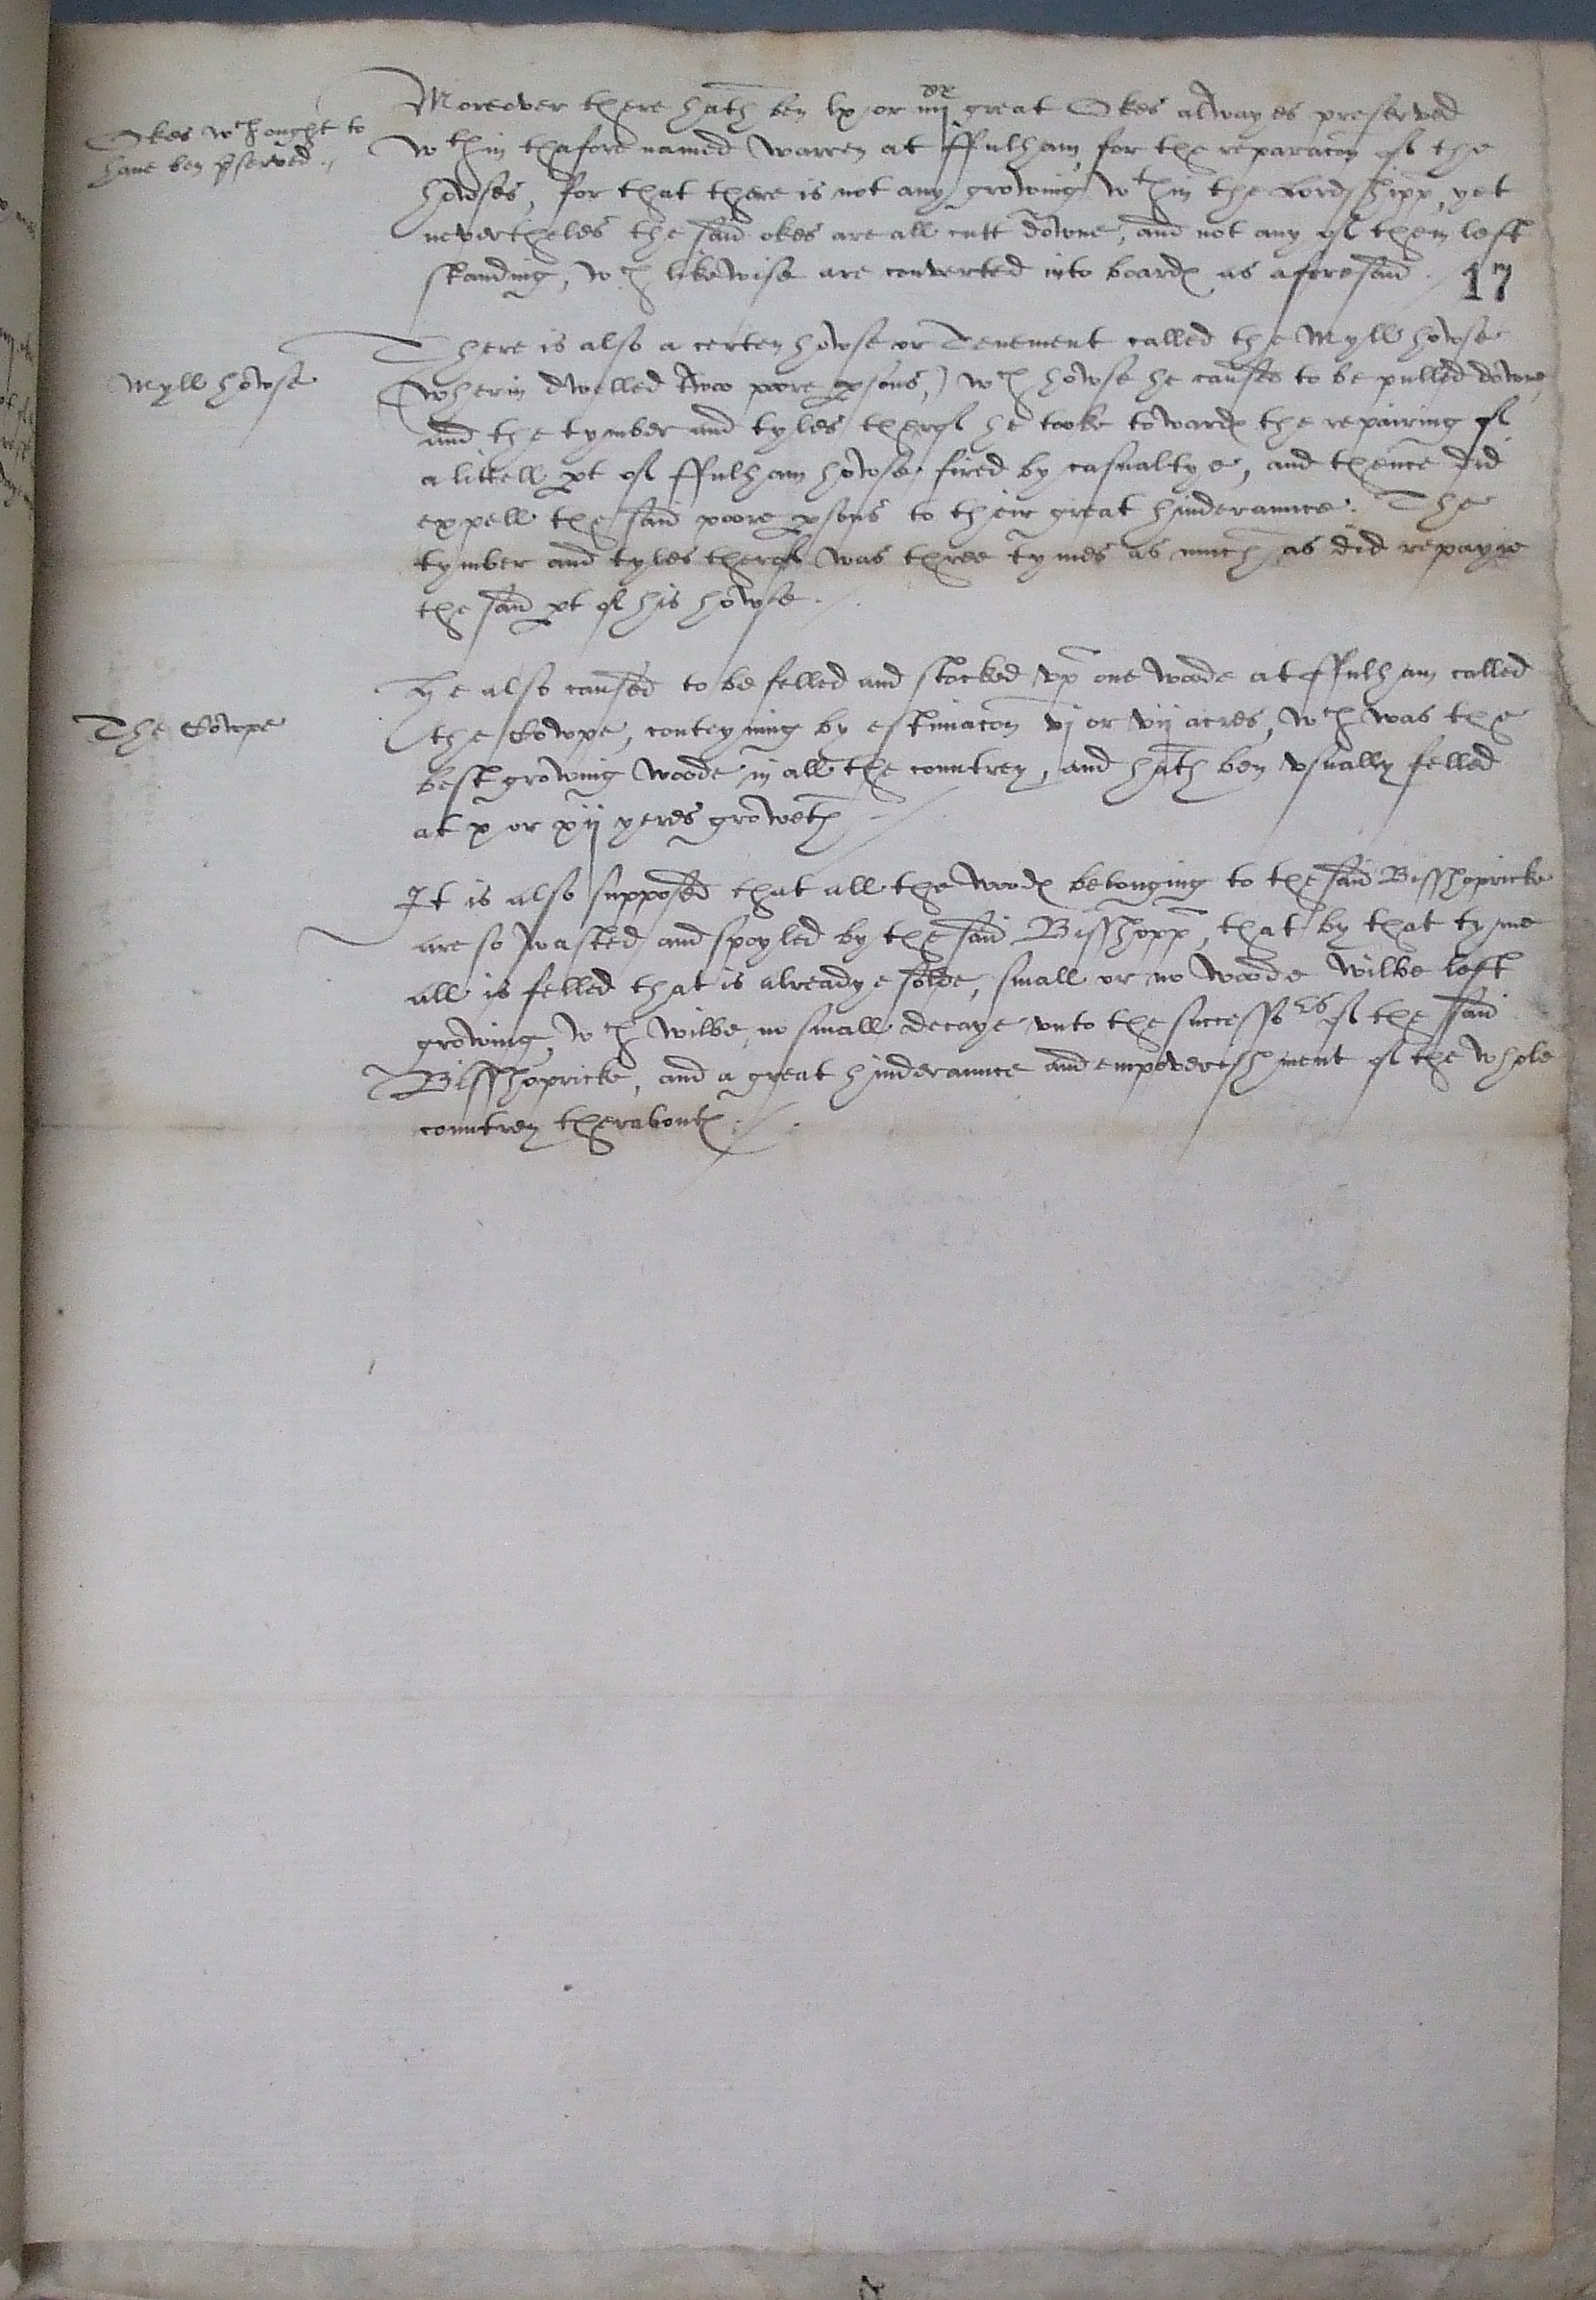 Okes wch ought to
have ben p̱served .//
Moreover there hath ben lx or iiijxx great Okes alwayes preserved
wthin thafore named Warren at ffulham, for the reparacōn of the
howses, for that there is not any growing wthin the Lordshipp, yet
nevertheles the said okes are all cutt downe, and not any of them left
standing, wch likewise are converted into boardꝭ as aforesaid . /
17
Myll howse
There is also a certen howse or Tenement called the Myll howse
(wherin dwelled two poore ꝑsons,) wch howse he caused to be pulled downe,
and the tymber and tyles therof he tooke towardꝭ the repairing of
a littell ꝑt of ffulham howse, fired by casualtye, and thence did
expell the said poore ꝑsons to their great hinderaunce. The
tymber and tyles therof was three tymes as much as did repayre
the said ꝑt of his howse . /
The Cowpe
He also caused to be felled and stocked vp one woode at ffulham called
the Cowpe, conteyning by estimacōn vj or vij acres, wch was the
best growing woode in all the countrey, and hath ben vsually felled
at x or xij yeres groweth /
It is also supposed that all the woodꝭ belonging to the said Bisshopricke
are so wasted and spoyled by the said Bisshopp, that by that tyme
all is felled that is alreadye solde, small or no woode wilbe left
growing, wch wilbe no small decaye vnto the successors of the said
Bisshopricke, and a great hinderaunce and empoverishment of the whole
countrey theraboutꝭ . / .